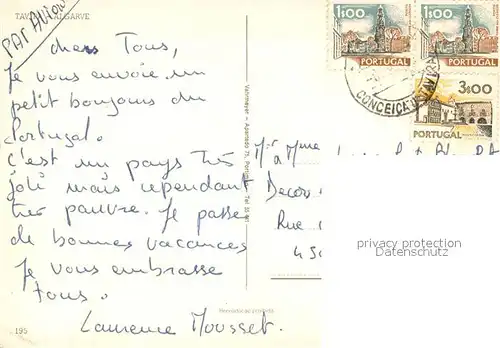 TAVIRA - ALGARVE
PAR AVION
chers Tous,
Je vous envoie un
petit boujour du
Portugal.
C'est un pays très
joli mais cependant
très pauvre. Je passe
de bonnes vacances
Je vous embrasse
tous.
Laurence Mousset.
195
1$00
PORTUGAL
1$00
PORTUGAL
3$00
PORTUGAL
CONCEIÇÃO TAVIRA
Mr & Mme
Decor
Rue
privacy protection
Datenschutz